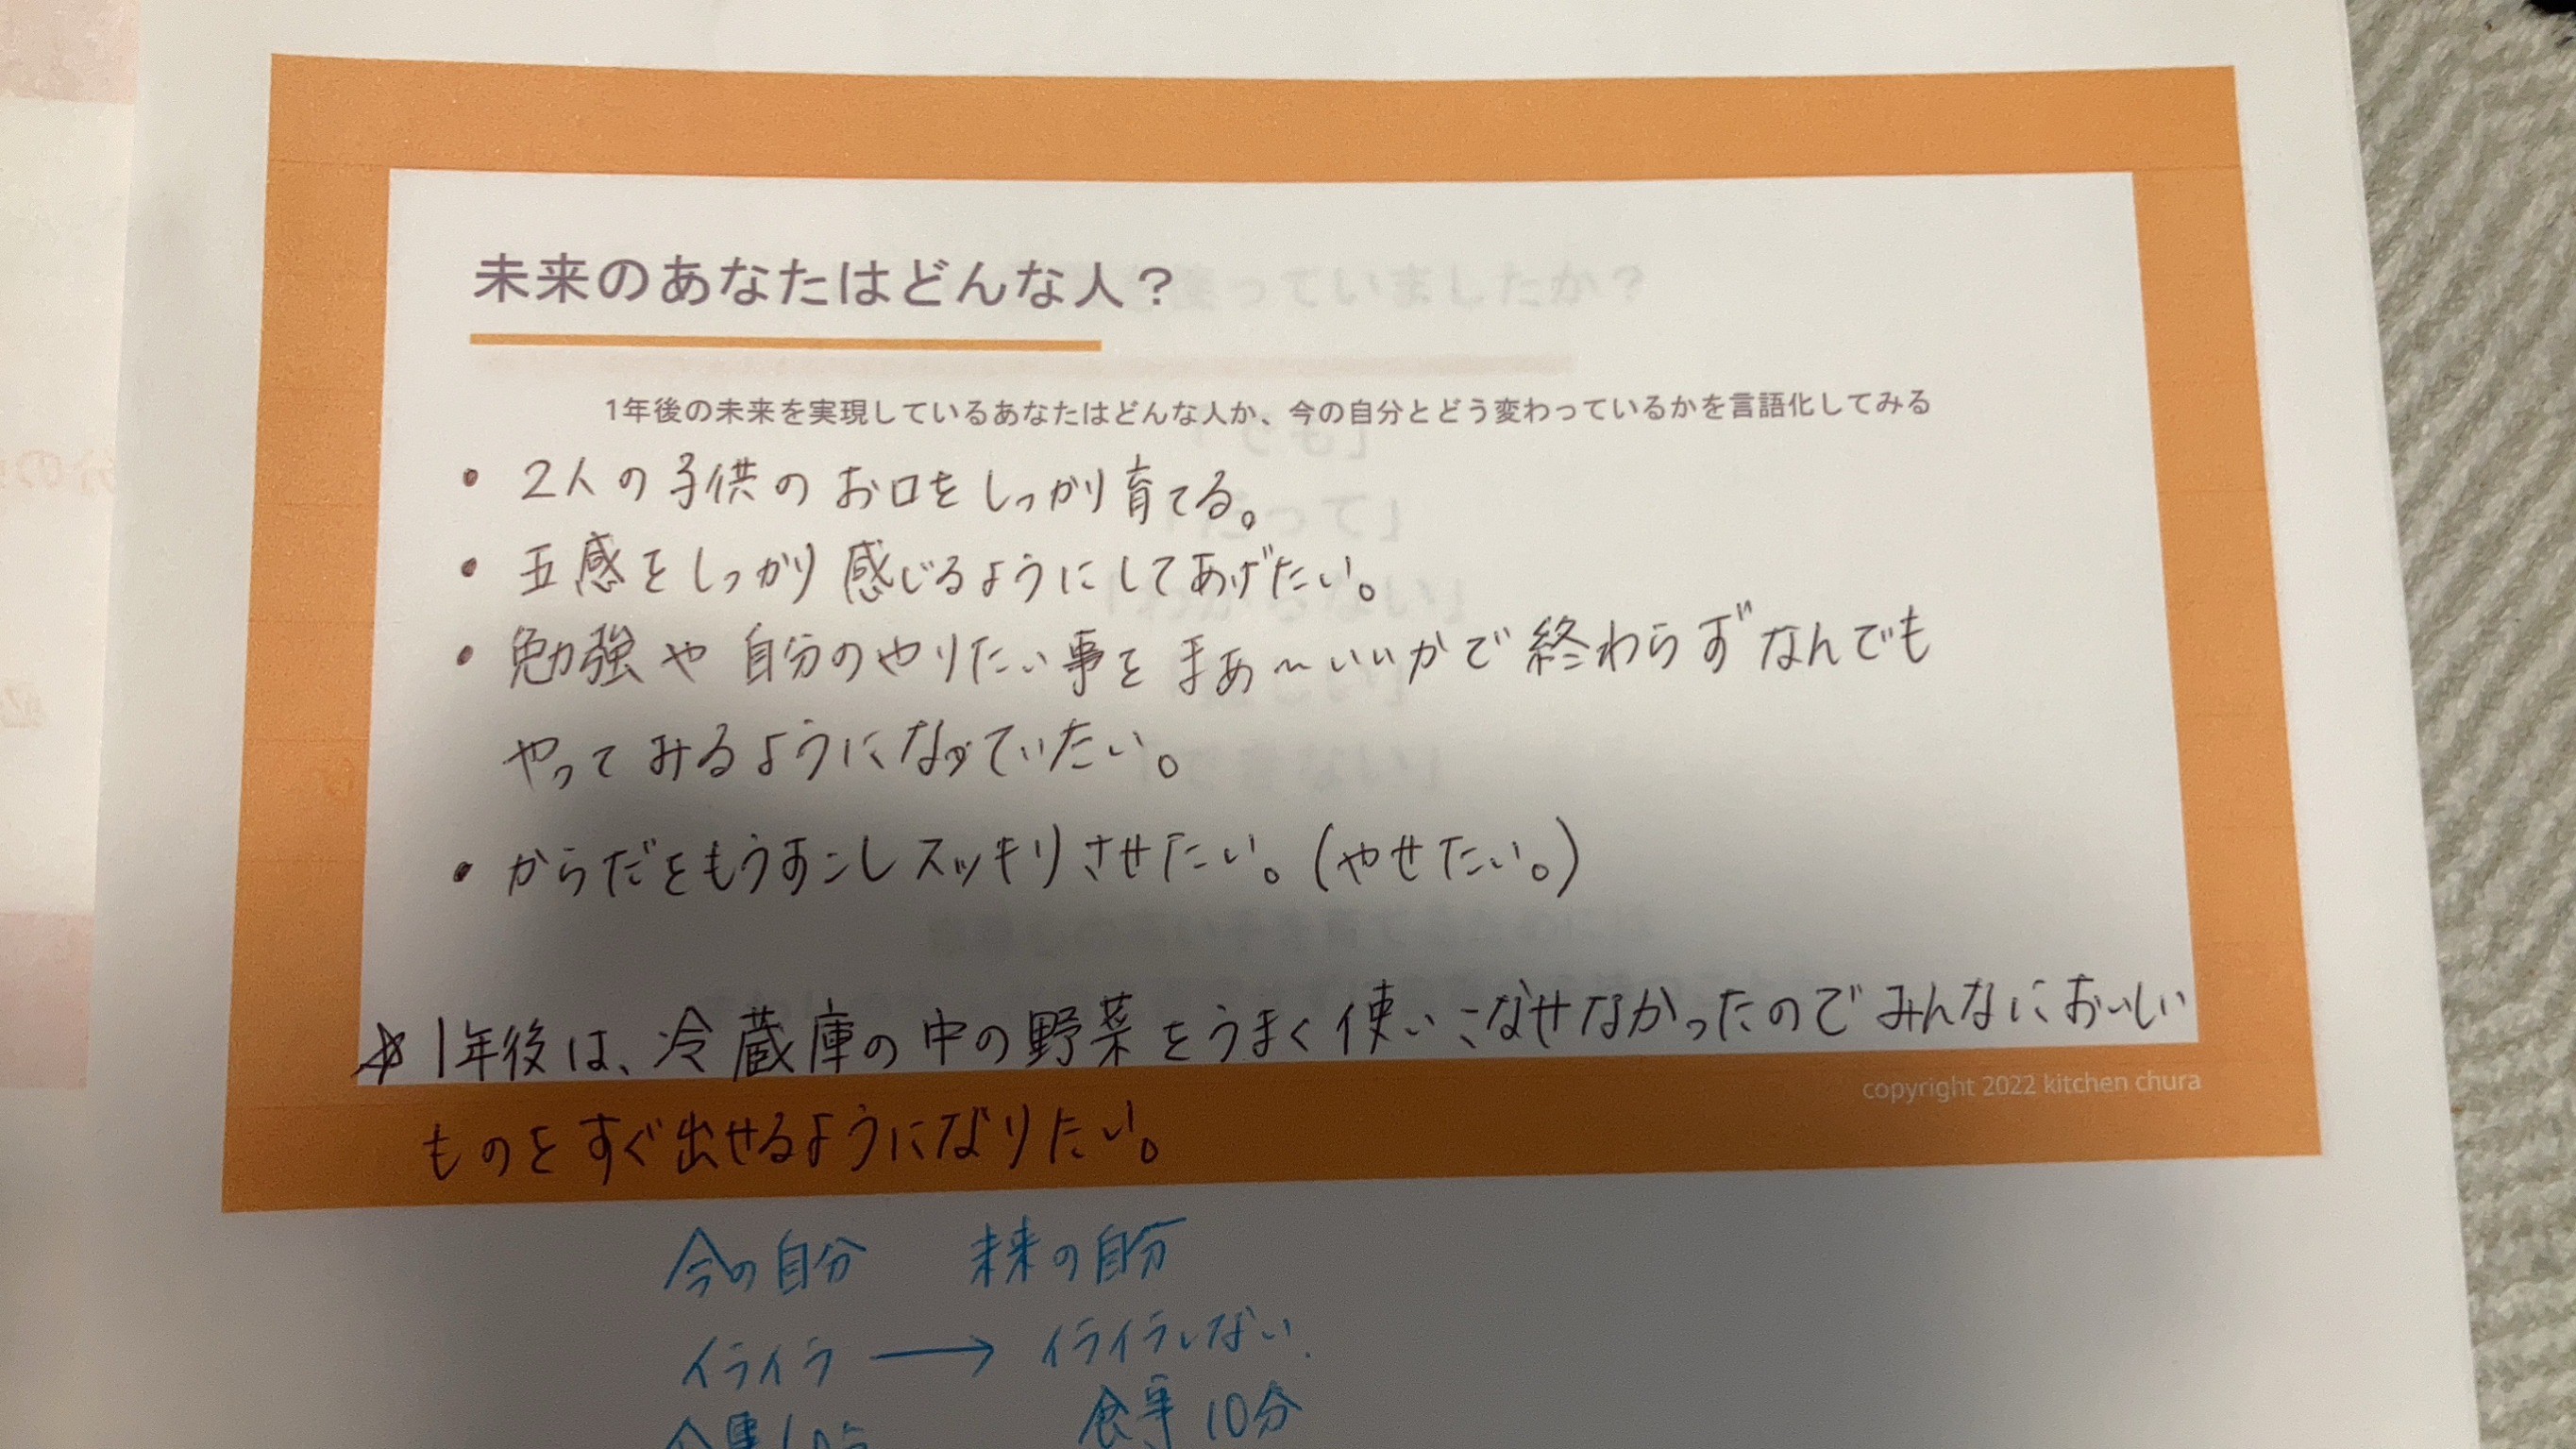 未来のあなたはどんな人？
1年後の未来を実現しているあなたはどんな人か、今の自分とどう変わっているかを言語化してみる
・2人の子供のお口をしっかり育てる。
・五感をしっかり感じるようにしてあげたい。
・勉強や自分のやりたい事をまぁ〜いいかで終わらずなんでも
やってみるようになっていたい。
・からだをもうすこしスッキリさせたい。(やせたい。)
☆1年後は、冷蔵庫の中の野菜をうまく使いこなせなかったのでみんなにおいしい
copyright 2022 kitchen chura
ものをすぐ出せるようになりたい。
今の自分 未来の自分
イライラ → イライラしない.
食事10分